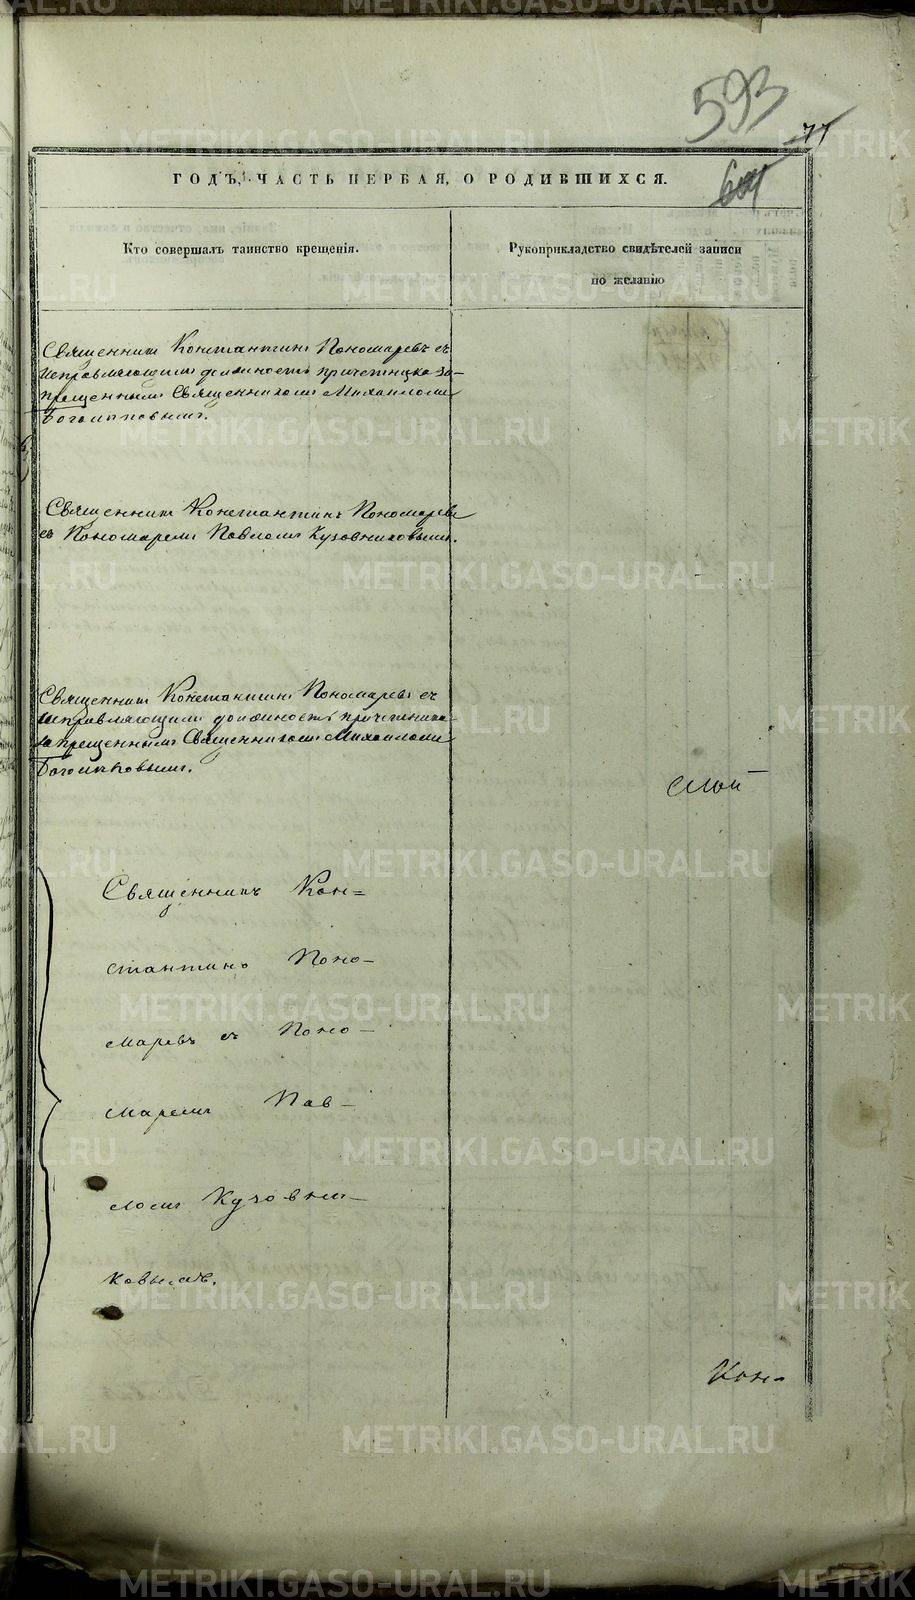 593
77
ГОДЪ, ЧАСТЬ ПЕРВАЯ, О РОДИВШИХСЯ.
Кто совершалъ таинство крещенія.
Рукоприкладство свидѣтелей записи
по желанію
Священникъ Константинъ Пономаревъ съ
исправляющимъ должность причетника за-
прещеннымъ Священникомъ Михаиломъ
Священникъ Константинъ Пономаревъ
съ Пономаремъ Павломъ Кузовниковымъ.
Священникъ Константинъ Пономаревъ съ
исправляющимъ должность причетника
запрещеннымъ Священникомъ Михаиломъ
Священникъ Кон=
стантинъ Поно-
маревъ съ Поно-
маремъ Пав-
ломъ Кузовни-
ковымъ.
Кон-
METRIKI.GASO-URAL.RU